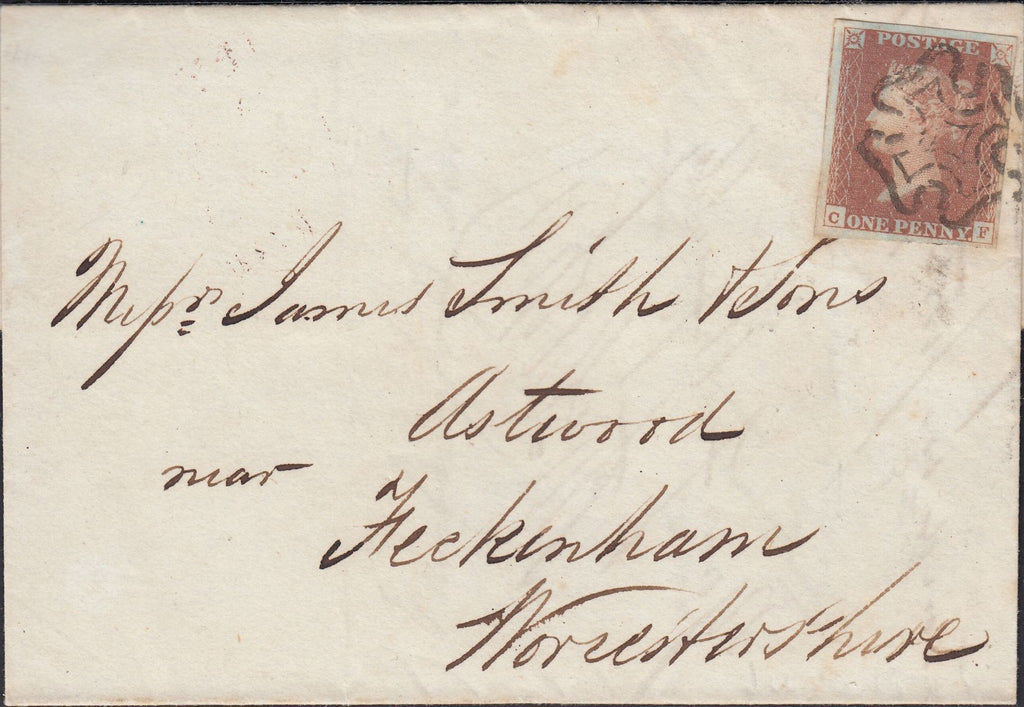 POSTAGE
C ONE PENNY F
Messrs. James Smith & Sons
Astwood
near
Feckenham
Worcestershire